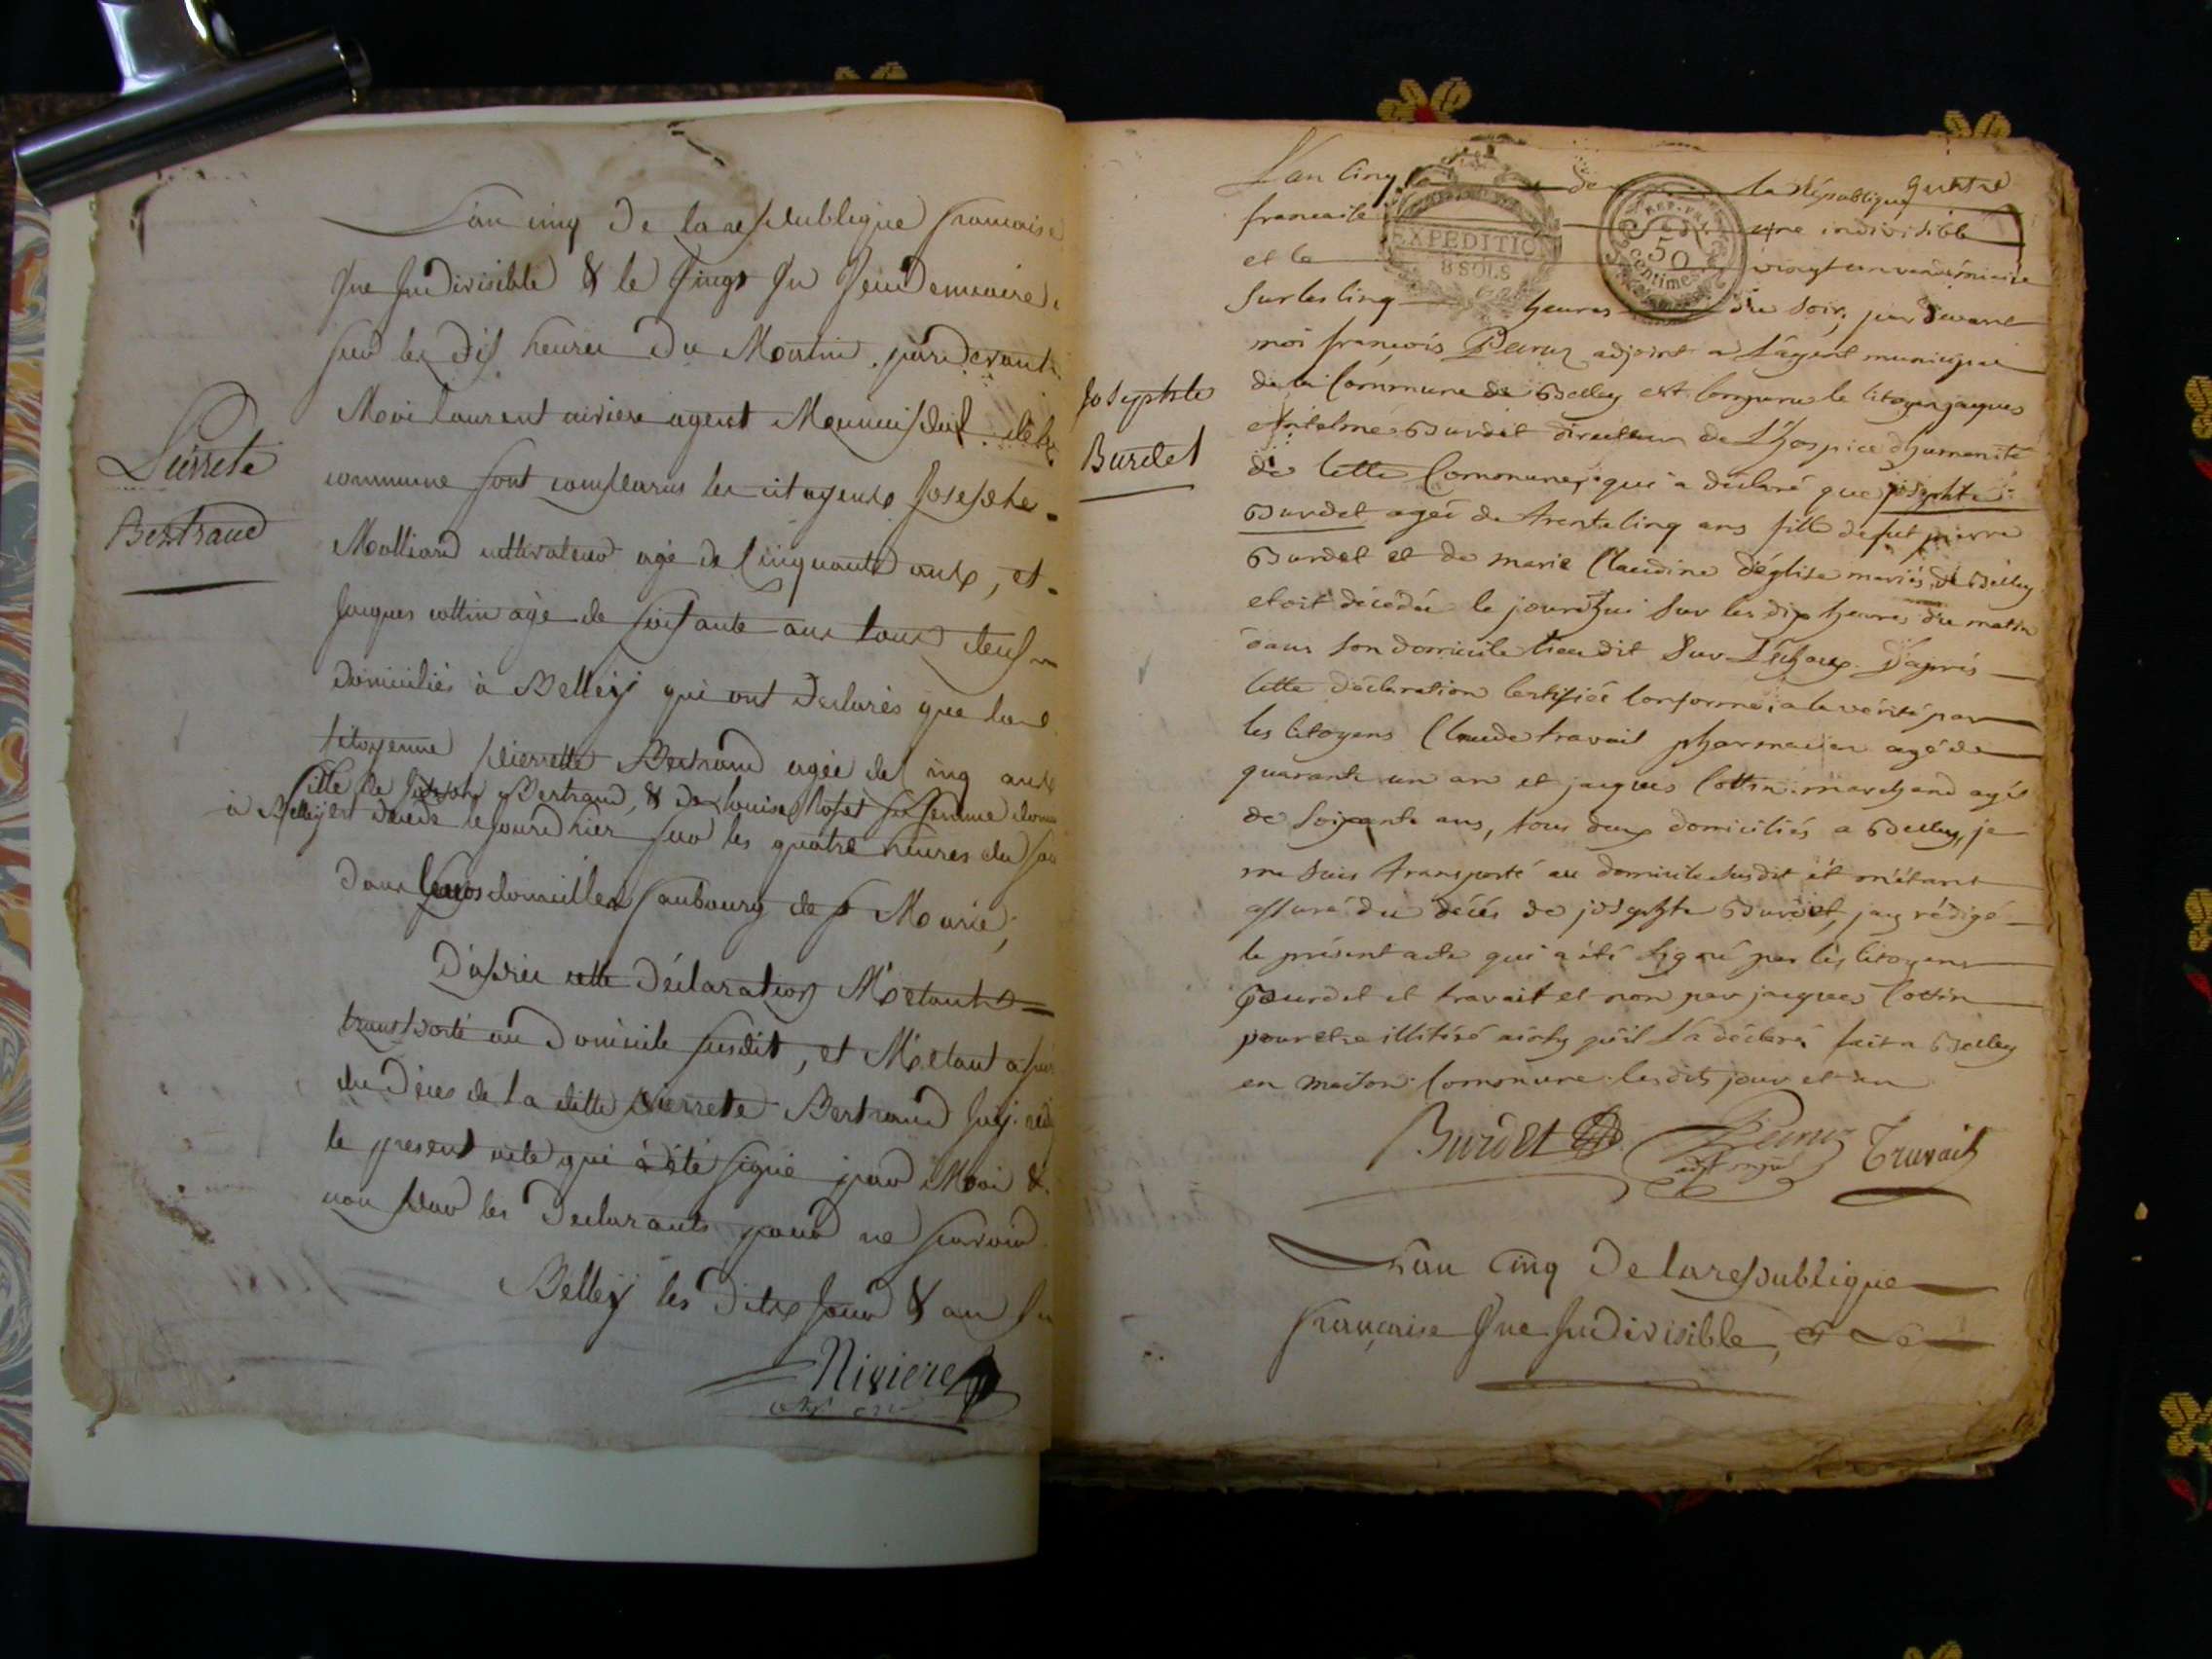 L'an cinq de la republique francaise
Une Indivisible & le vingt un Vendemiaire
sur les dix heures du Matin, pardevant
Moi laurent niviere agent Municipal de la
commune sont comparus les citoyens Josephe
Molliard cultivateur agé de Cinquante ans, et
Jacques cottin agé de soixante ans tous deux
domiciliés à Belley qui ont declarés que la
Pierrete
Bertrand
citoyenne pierrette Bertrand agée de cinq ans
fille de Josephe Bertrand, & de louise Rofet sa femme
à Belley est decedé le jourdhier sur les quatre heures du
dans leurs domicilles faubourg de st Marie;
D'après cette déclaration M'etant
transporté au domicile susdit, et M'étant
du déces de la ditte pierrete Bertrand J'ay
le present acte qui à été signé par Moi &
non par les Declarants pour ne savoir
Belley les dits jour & an
Niviere
quatre
L'an cinq de la République
francaise une indivisible
et le vingt un vendémiaire
sur les cinq heures du soir, par devant
moi françois adjoint a L'agent municipal
de la Commune de Belley est comparu le citoyen jaques
Josephte
Burdet
antelme Burdet directeur de L'hospice d'humanité
de cette Commune, qui a déclaré que josephte
Burdet agée de trente cinq ans fille de fut pierre
Burdet et de marie Claudine déglise mariés de Belley
etoit décédée le jourd'hui sur les dix heures du matin
dans son domicile lieu dit Sur D'après
cette déclaration certifiée conforme a la vérité par
les citoyens Claude travail pharmacien agé de
quarante un an et jacques Cottin marchand agé
de soixante ans, tous deux domiciliés a Belley, je
me suis transporté au domicile susdit et m'étant
assuré du décés de josephte Burdet, jay rédigé
le présent acte qui a été signé par les citoyens
Burdet et travail et non par jacques Cottin
pour etre illitéré ainsy qu'il l'a déclaré fait a Belley
en maison Commune lesdits jour et an
Burdet Travail
L'an cinq de la republique
française Une Indivisible, & Le
EXPEDITION
8 SOLS
REP. FRA.
50
centimes